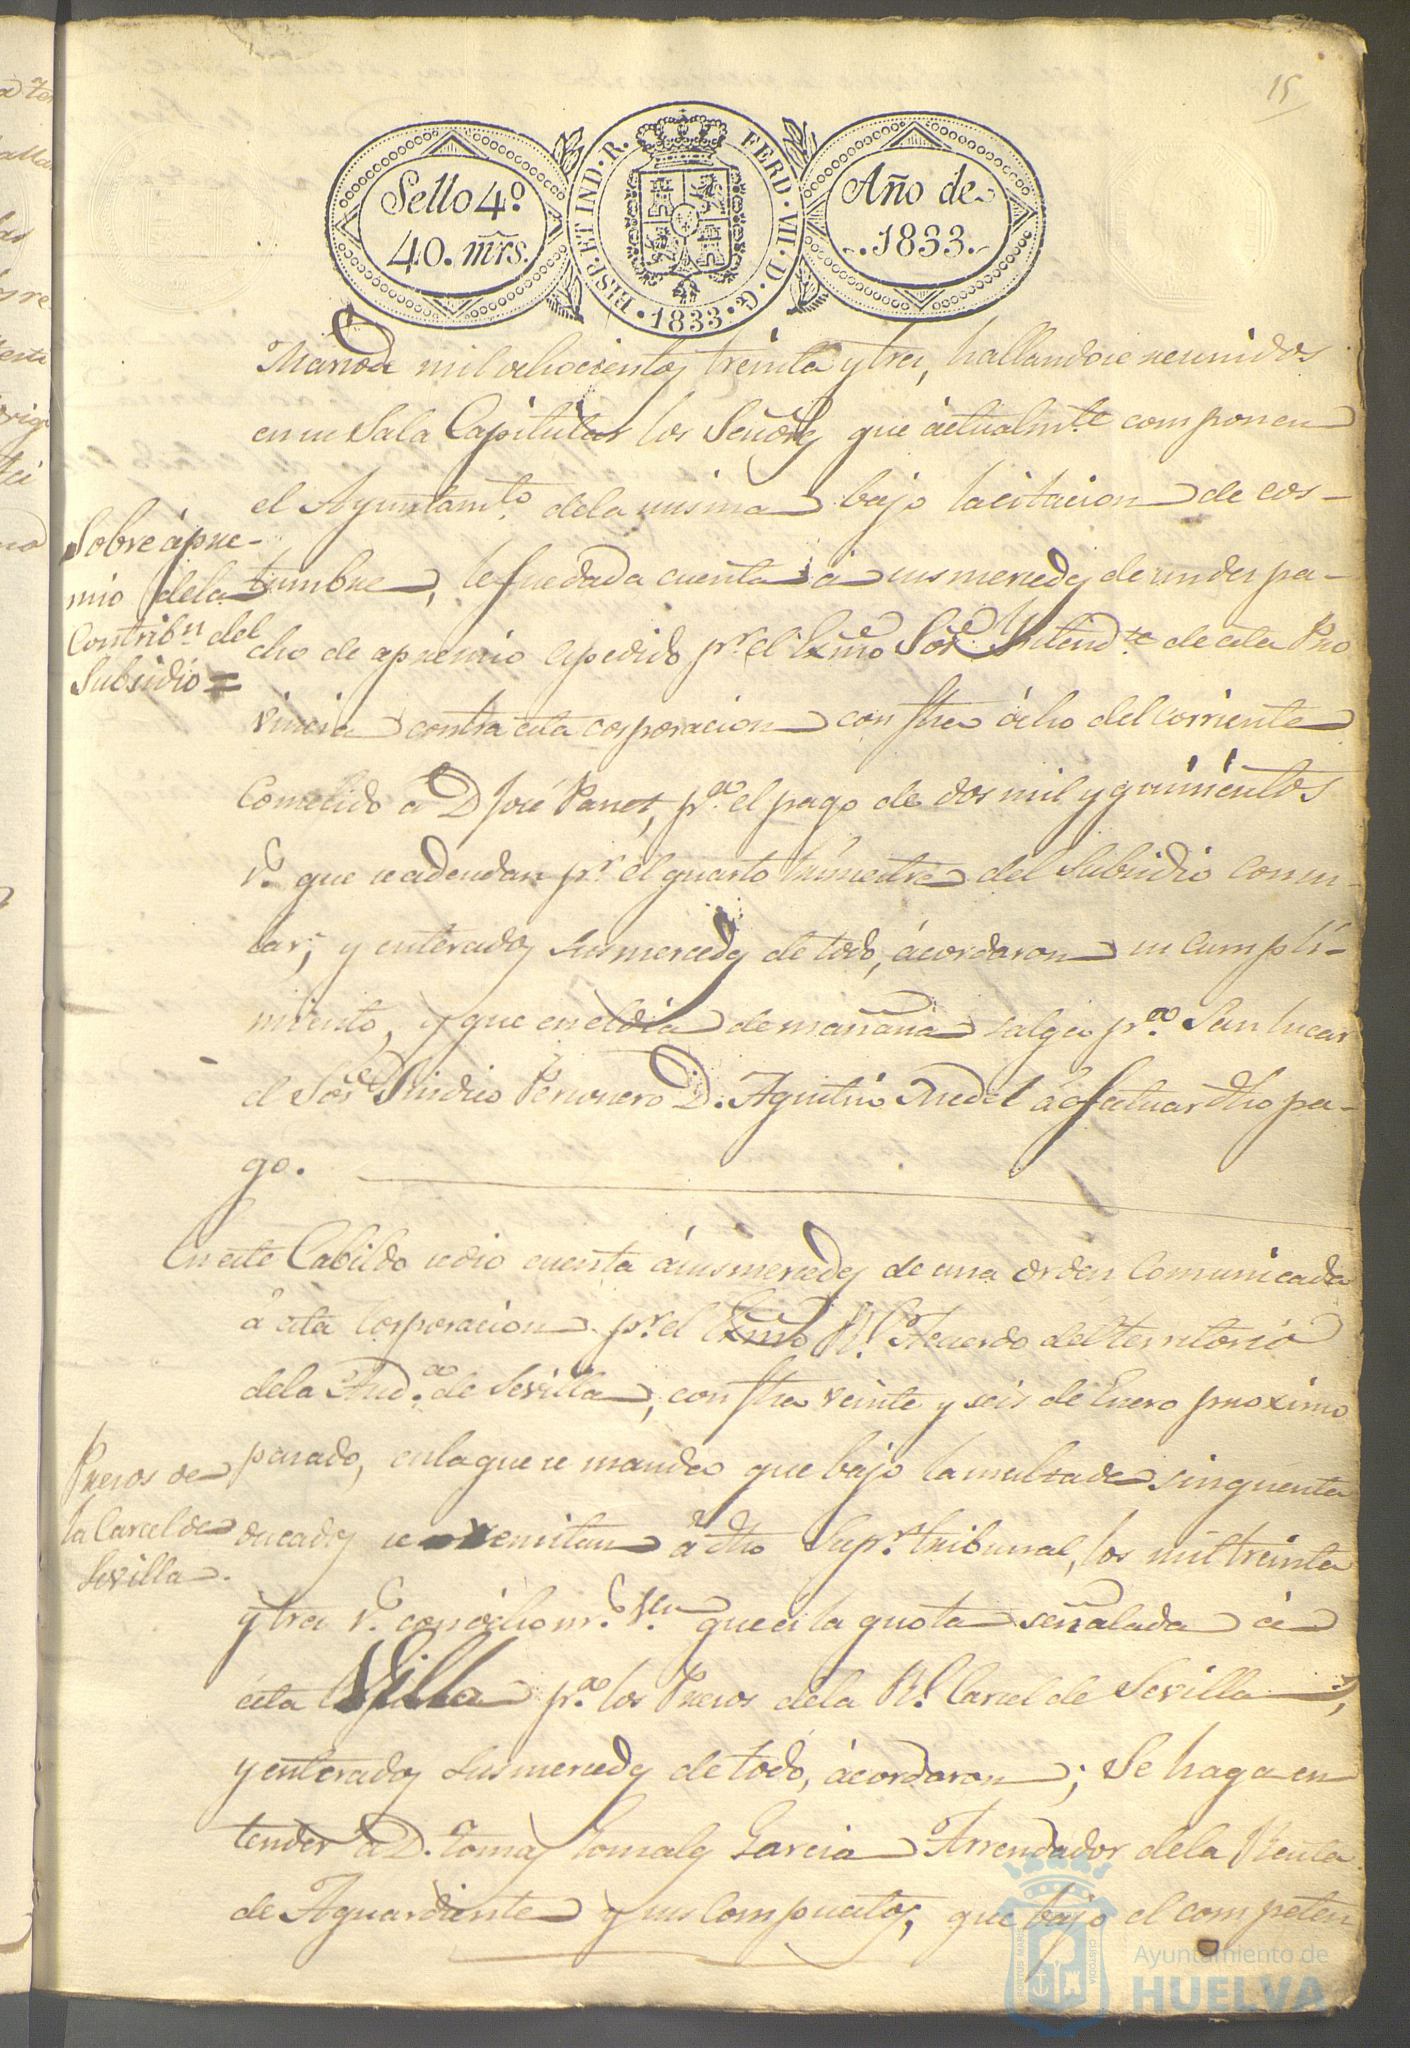 15
Sello 4.º
40. mrs.
HISP. ET IND. R. FERD. VII. D. G.
1833
Año de
1833.
Marzo de mil ochocientos treinta y tres, hallandose reunidos
en su Sala Capitular los Señores que actualmte componen
el Ayuntamto. de la misma bajo la citacion de cos-
tumbre, le fue dada cuenta á sus mercedes de un despa-
cho de apremio espedido pr. el Exmo Sor. Intendte. de esta Pro
vincia contra esta corporacion con fha ócho del corriente
Cometido á D José , pa. el pago de dos mil y quinientos
rs. que se adeudan pr. el quarto trimestre del Subsidio Comer-
cial; y enterados sus mercedes de todo, ácordaron su cumpli-
miento, y que en el dia de mañana salga pa. San lucar
el Sor. Sindico Personero D. Agustin á efectuar dho pa-
go.
Sobre ápre-
mio de la
Contribn. del
Subsidio =
En este Cabildo se dio cuenta á sus mercedes de una orden Comunicada
á esta Corporacion pr. el Exmo Rl. Acuerdo del territorio
de la Auda. de Sevilla, con fha veinte y seis de Enero proximo
pasado, en la que se manda que bajo la multa de sinquenta
ducados se remitan á dho Supr. tribunal, los mil treinta
y tres rs. con ócho ms. vn. que es la quota señalada á
esta Villa pa. los Presos de la Rl. Carcel de Sevilla,
y enterados sus mercedes de todo, ácordaron; Se haga en
tender á D. Tomas Gonzales Garcia Arrendador de la Renta
de Aguardiente y sus Compuestos, que bajo el competen
Presos de
la Carcel de
Sevilla.
Ayuntamiento de
HUELVA